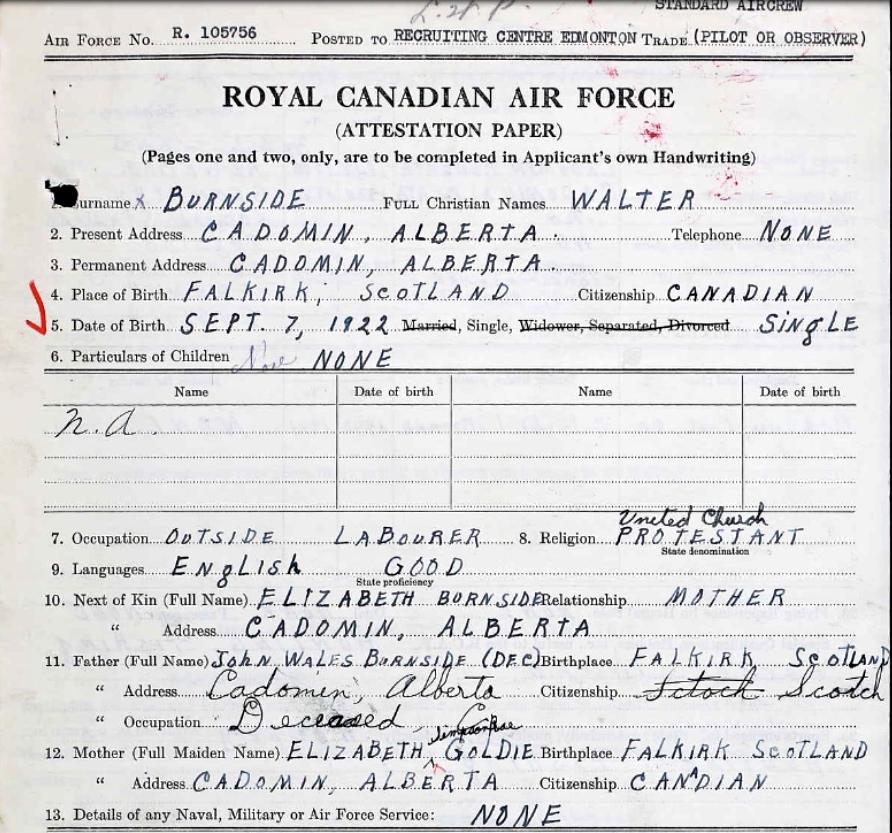 STANDARD AIRCREW
AIR FORCE No. R. 105756 POSTED TO RECRUITING CENTRE EDMONTON TRADE (PILOT OR OBSERVER)
ROYAL CANADIAN AIR FORCE
(ATTESTATION PAPER)
(Pages one and two, only, are to be completed in Applicant's own Handwriting)
Surname X BURNSIDE FULL Christian Names WALTER
2. Present Address CADOMIN, ALBERTA. Telephone NONE
3. Permanent Address CADOMIN, ALBERTA.
4. Place of Birth FALKIRK, SCOTLAND Citizenship CANADIAN
5. Date of Birth SEPT. 7, 1922 Married, Single, Widower, Separated, Divorced SINGLE
6. Particulars of Children None NONE
Name Date of birth Name Date of birth
N.A.
United Church
7. Occupation OUTSIDE LABOURER 8. Religion PROTESTANT
State denomination
9. Languages ENGLISH GOOD
State proficiency
10. Next of Kin (Full Name) ELIZABETH BURNSIDE Relationship MOTHER
" Address CADOMIN, ALBERTA
11. Father (Full Name) JOHN WALES BURNSIDE (DEC) Birthplace FALKIRK, SCOTLAND
" Address Cadomin, Alberta Citizenship Scotch Scotch
" Occupation Deceased
12. Mother (Full Maiden Name) ELIZABETH GOLDIE Birthplace FALKIRK SCOTLAND
" Address CADOMIN, ALBERTA Citizenship CANADIAN
13. Details of any Naval, Military or Air Force Service: NONE